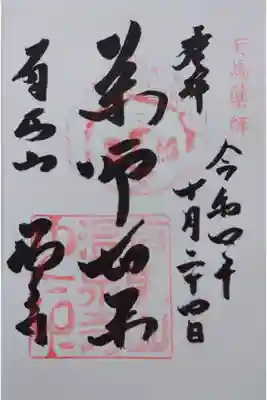 有馬薬師
奉拝
令和四年
十月二十四日
薬師如来
有馬山